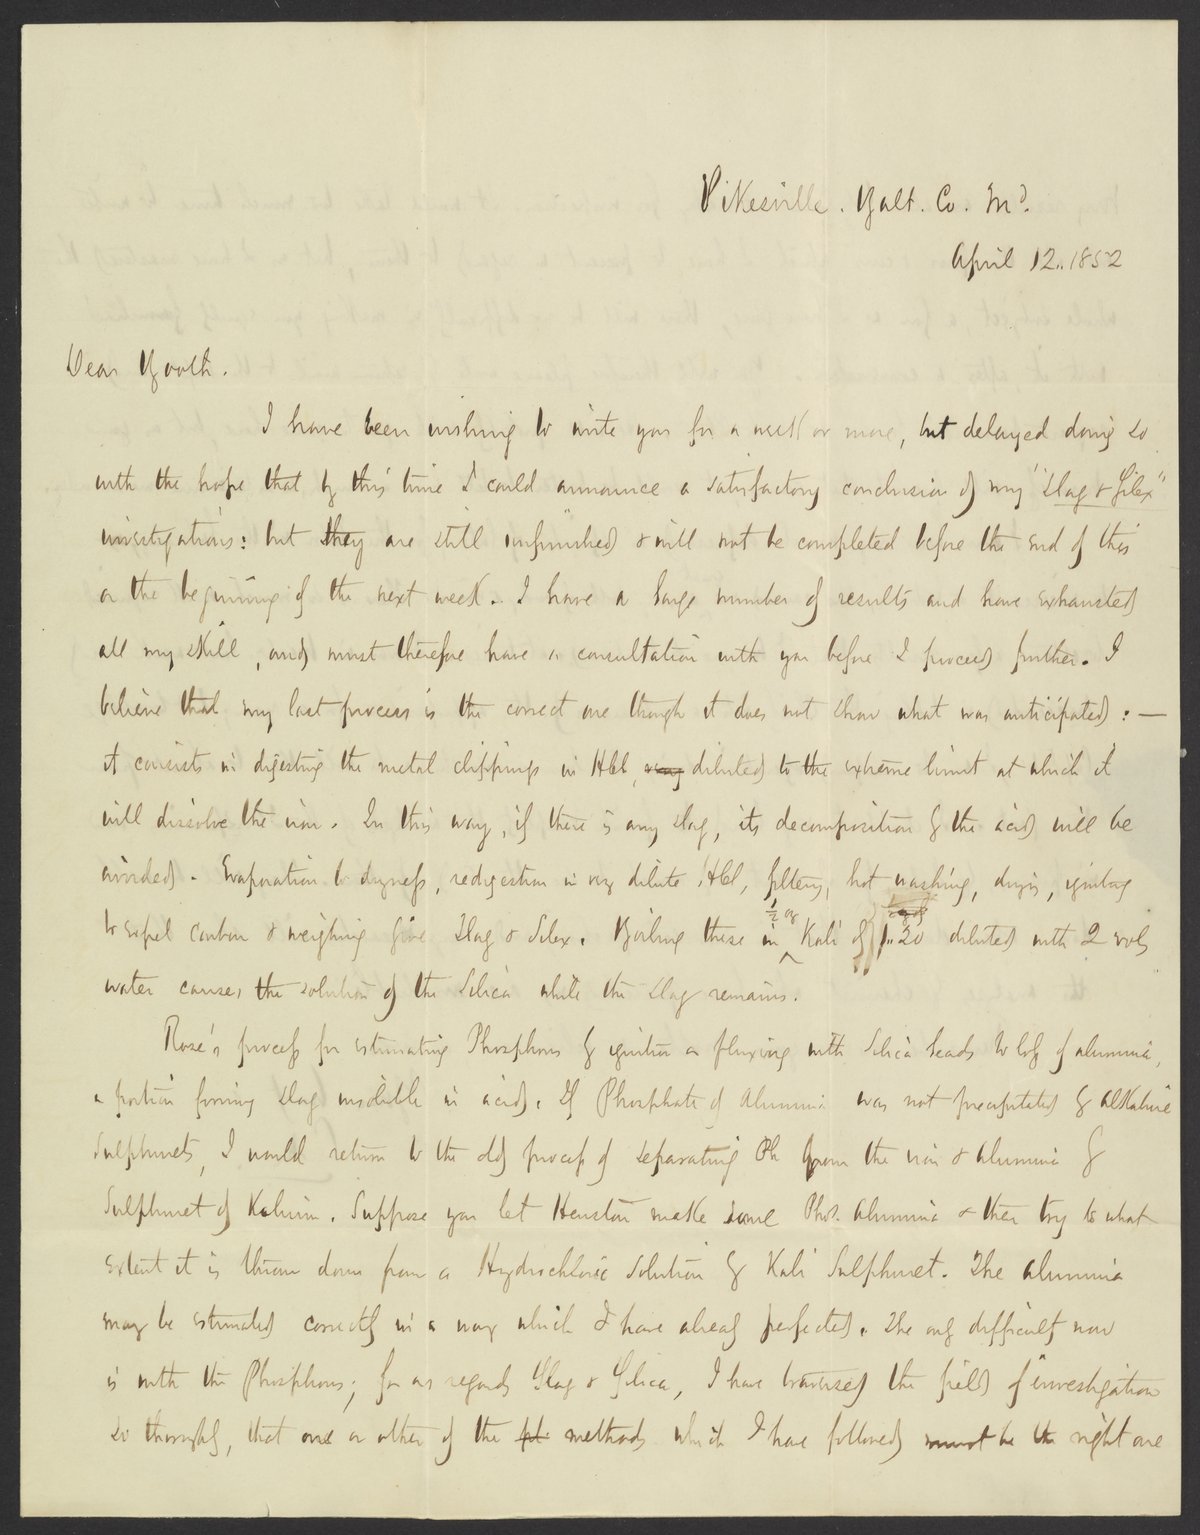 Pikesville. Balt. Co. Md.
April 12.. 1852
Dear Booth.
I have been wishing to write you for a week or more, but delayed doing so
with the hope that by this time I could announce a satisfactory conclusion of my "Slag & Silex"
investigations: but they are still unfinished & will not be completed before the end of this
or the beginning of the next week. I have a large number of results and have exhausted
all my skill, and must therefore have a consultation with you before I proceed further. I
believe that my last process is the correct one though it does not show what was anticipated: —
it consists in digesting the metal clippings in HCl, very diluted to the extreme limit at which it
will dissolve the iron. In this way, if there is any slag, its decomposition by the acid will be
avoided. Evaporation to dryness, redigestion in very dilute HCl, filtering, hot washing, drying, igniting
to expel carbon & weighing give Slag & Silex. Boiling these in ½ oz Kali of 1..20 diluted with 2 vols
water causes the solution of the Silica while the slag remains.
Rose's process for estimating Phosphorus by ignition or fluxing with Silica leads to loss of alumina,
a portion forming slag insoluble in acids. If Phosphate of Alumina was not precipitated by alkaline
Sulphurets, I would return to the old process of separating Ph from the iron & alumina by
Sulphuret of Kalium. Suppose you let Henston make some Phos. Alumina & then try to what
extent it is thrown down from a Hydrochloric solution by Kali Sulphuret. The alumina
may be estimated correctly in a way which I have already perfected. The only difficulty now
is with the Phosphorus; for as regards Slag & Silica, I have traversed the field of investigation
so thoroughly, that one or other of the methods which I have followed must be the right one